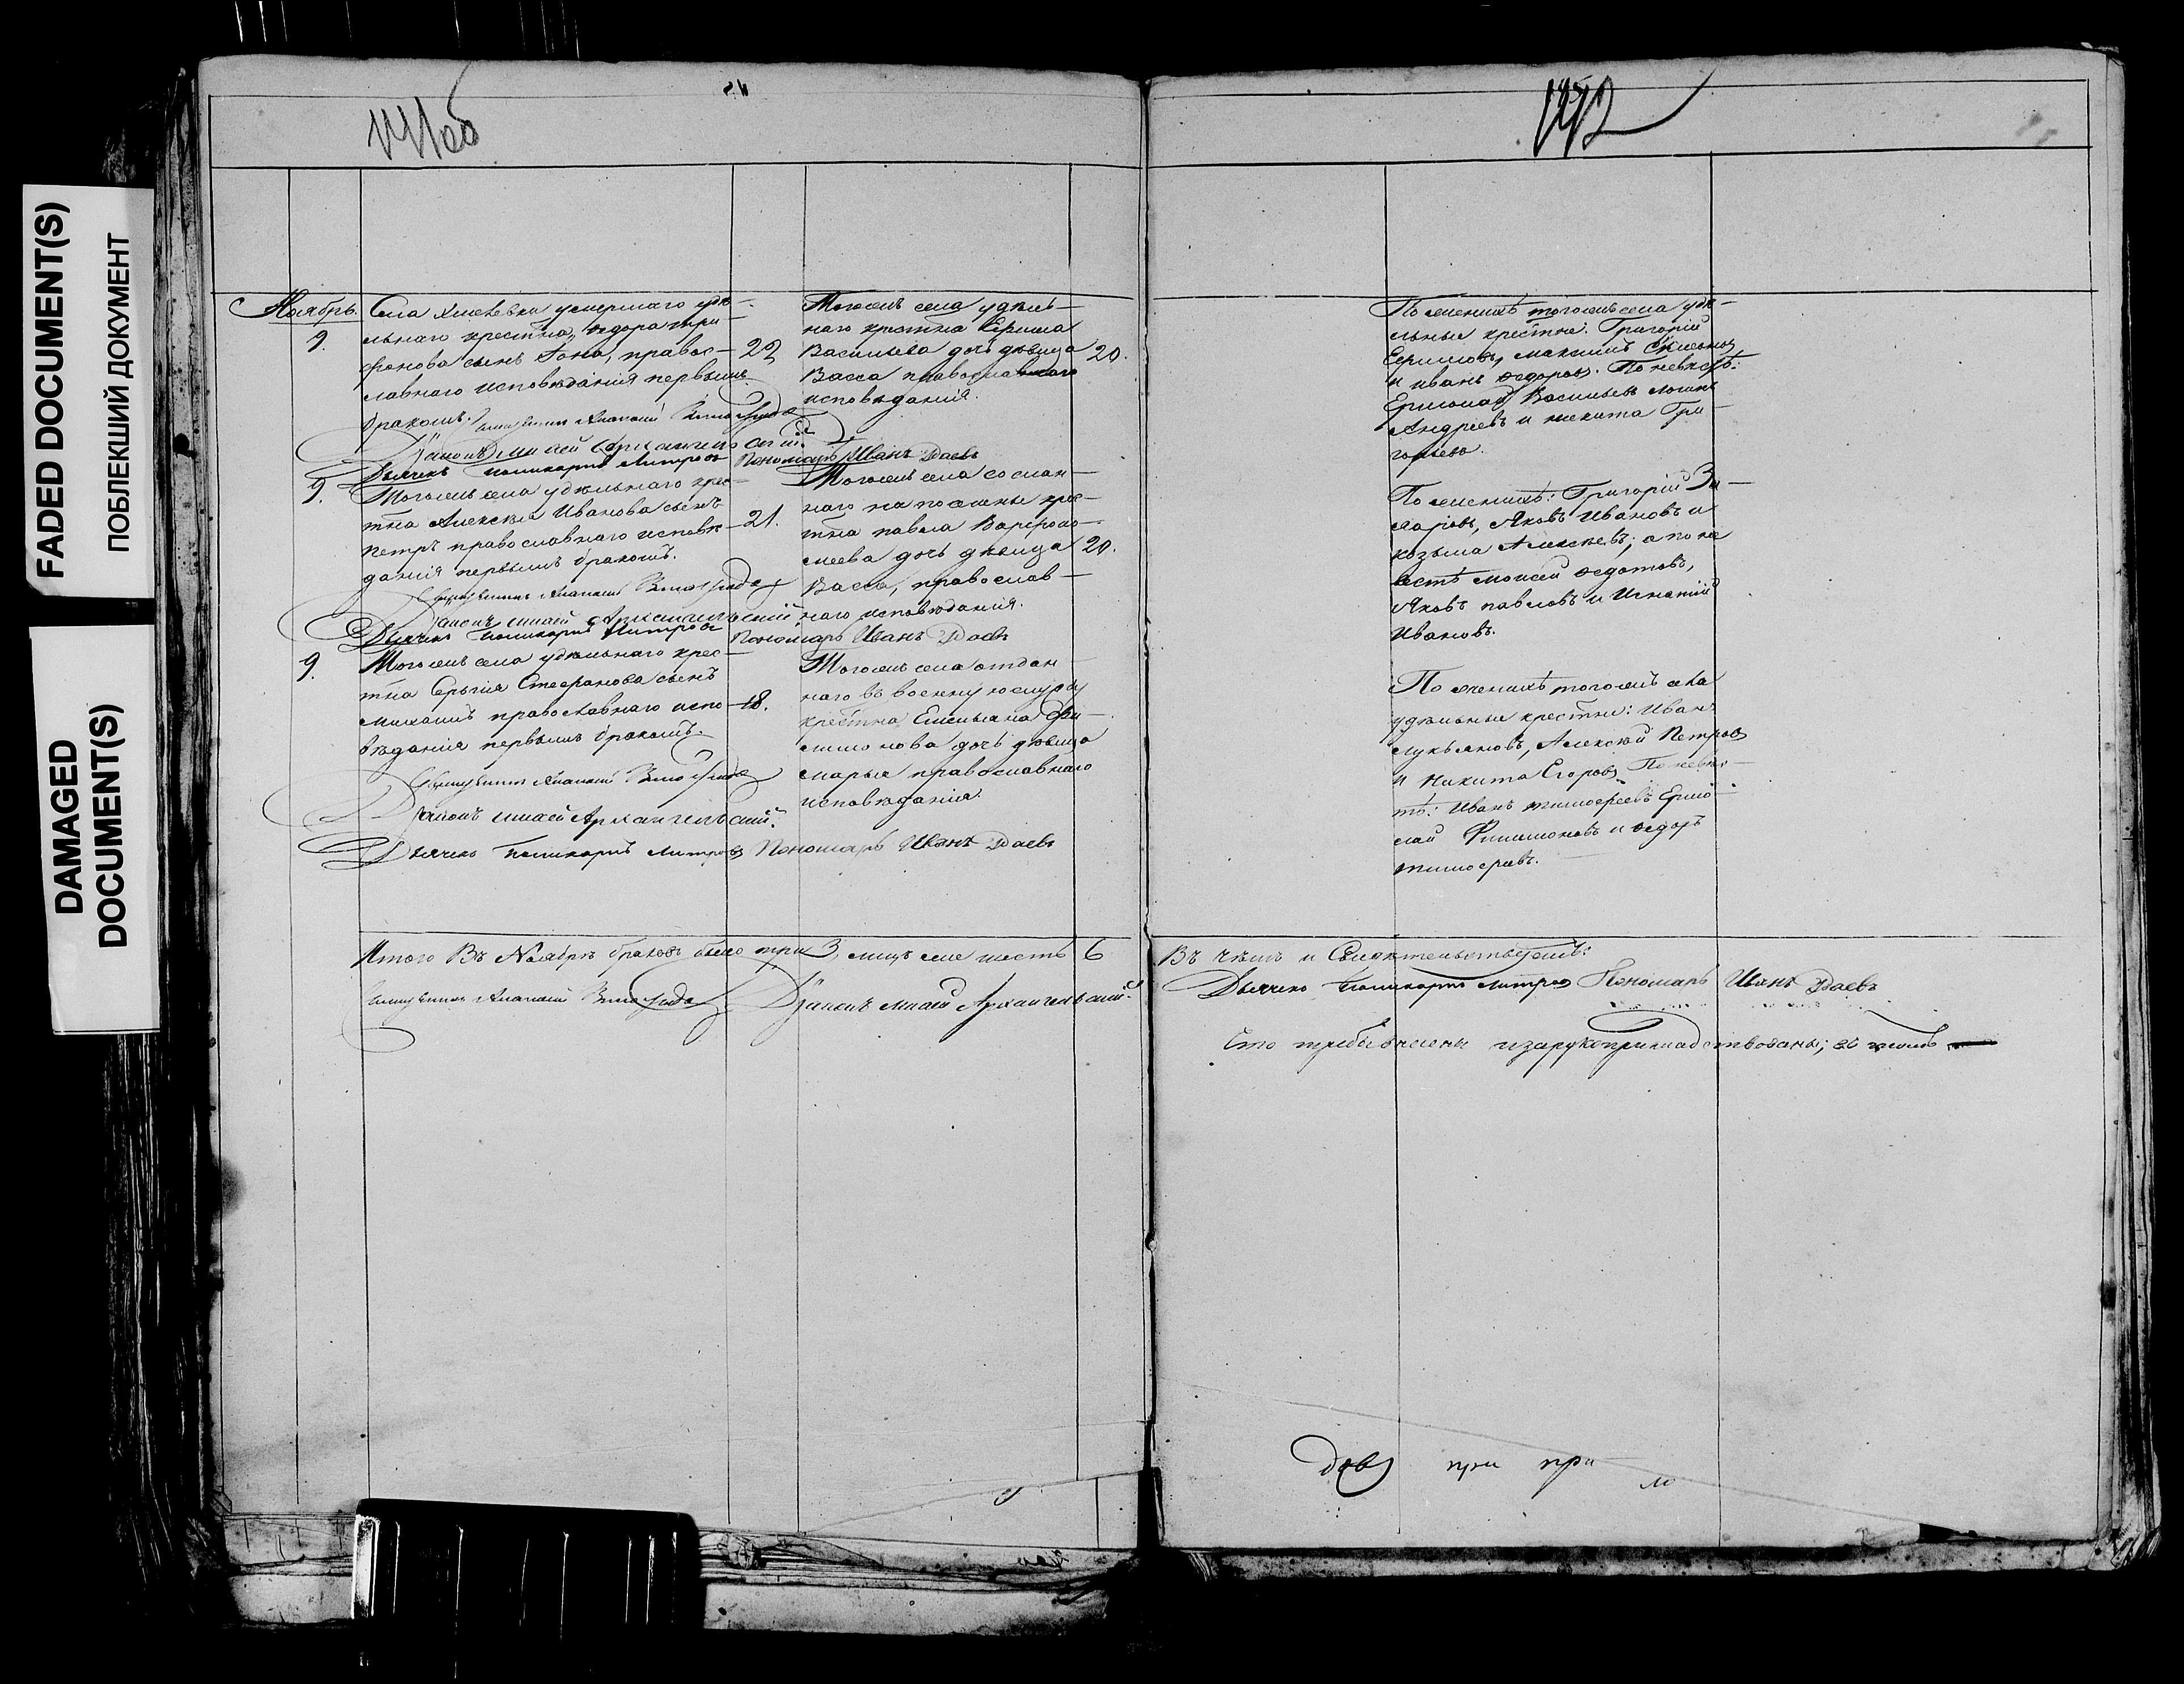 FADED DOCUMENT(S)
ПОБЛЕКШИЙ ДОКУМЕНТ
DAMAGED
DOCUMENT(S)
141об
142
Ноябрь.
9.
Села умершаго удѣ-
льнаго крестна, Ѳедора Три-
фонова сынъ правос-
лавнаго исповѣданія первымъ
бракомъ.
22
Тогожъ села удѣль-
наго крестна Ефима
Васильева дочь дѣвица
Васса православнаго
исповѣданія.
20.
По женихѣ тогожъ села удѣ-
льные крестне: Григорій
Ефимовъ, максимъ
и иванъ Ѳедоровъ. По невѣстѣ:
Ермолай Васильевъ
Андреевъ и никита Гри-
горьевъ.
Священникъ
Діаконъ Архангельскій.
Дьячекъ Поликарпъ Митровъ Пономарь Иванъ Даевъ
9.
Тогожъ села удѣльнаго крес-
тна Алексѣя Иванова сынъ
Петръ православнаго исповѣ-
данія первымъ бракомъ.
21.
Тогожъ села сослан-
наго на поселенье крес-
тна павла Варфоло-
меева дочь дѣвица
Васса, православ-
наго исповѣданія.
20.
По женихѣ: Григорій За-
харовъ, Яковъ Ивановъ и
козьма Алексѣевъ; а по не
вѣстѣ моисей Ѳедотовъ,
Яковъ павловъ и Игнатій
Ивановъ.
Священникъ
Діаконъ Архангельскій.
Дьячекъ Поликарпъ Митровъ Пономарь Иванъ Даевъ
9.
Тогожъ села удѣльнаго крес-
тна Сергія Стефанова сынъ
михаилъ православнаго испо-
вѣданія первымъ бракомъ.
18.
Тогожъ села отдан
наго въ военную службу
крестна Емельяна Фи-
лимонова дочь дѣвица
марья православнаго
исповѣданія.
По женихѣ тогожъ села
удѣльные крестне: Иванъ
лукьяновъ, Алексѣй Петровъ
и Никита Егоровъ. По невѣс-
тѣ: Иванъ тимофеевъ Ермо-
лай Филимоновъ и Ѳедоръ
тимофеевъ.
Священникъ
Діаконъ Архангельскій.
Дьячекъ Поликарпъ Митровъ Пономарь Иванъ Даевъ
Итого Въ Ноябрѣ браковъ было три 3, лицъ шесть 6
Въ чемъ и Свидѣтельствуемъ:
Священникъ Діаконъ Архангельскій.
Дьячекъ Поликарпъ Митровъ Пономарь Иванъ Даевъ
при при-